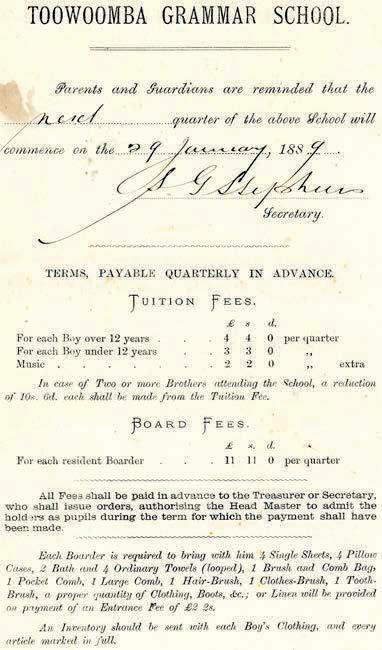 TOOWOOMBA GRAMMAR SCHOOL.
Parents and Guardians are reminded that the
next quarter of the above School will
commence on the 29 January, 1889.
S G Stephens
Secretary.
TERMS, PAYABLE QUARTERLY IN ADVANCE.
TUITION FEES.
£ s d.
For each Boy over 12 years . . . 4 4 0 per quarter
For each Boy under 12 years . . . 3 3 0 ,,
Music . . . . . . . 2 2 0 ,, extra
In case of Two or more Brothers attending the School, a reduction
of 10s. 6d. each shall be made from the Tuition Fee.
BOARD FEES.
£ s. d.
For each resident Boarder . . . 11 11 0 per quarter
All Fees shall be paid in advance to the Treasurer or Secretary,
who shall issue orders, authorising the Head Master to admit the
holders as pupils during the term for which the payment shall have
been made.
Each Boarder is required to bring with him 4 Single Sheets, 4 Pillow
Cases, 2 Bath and 4 Ordinary Towels (looped), 1 Brush and Comb Bag,
1 Pocket Comb, 1 Large Comb, 1 Hair-Brush, 1 Clothes-Brush, 1 Tooth-
Brush, a proper quantity of Clothing, Boots, &c.; or Linen will be provided
on payment of an Entrance Fee of £2 2s.
An Inventory should be sent with each Boy's Clothing, and every
article marked in full.